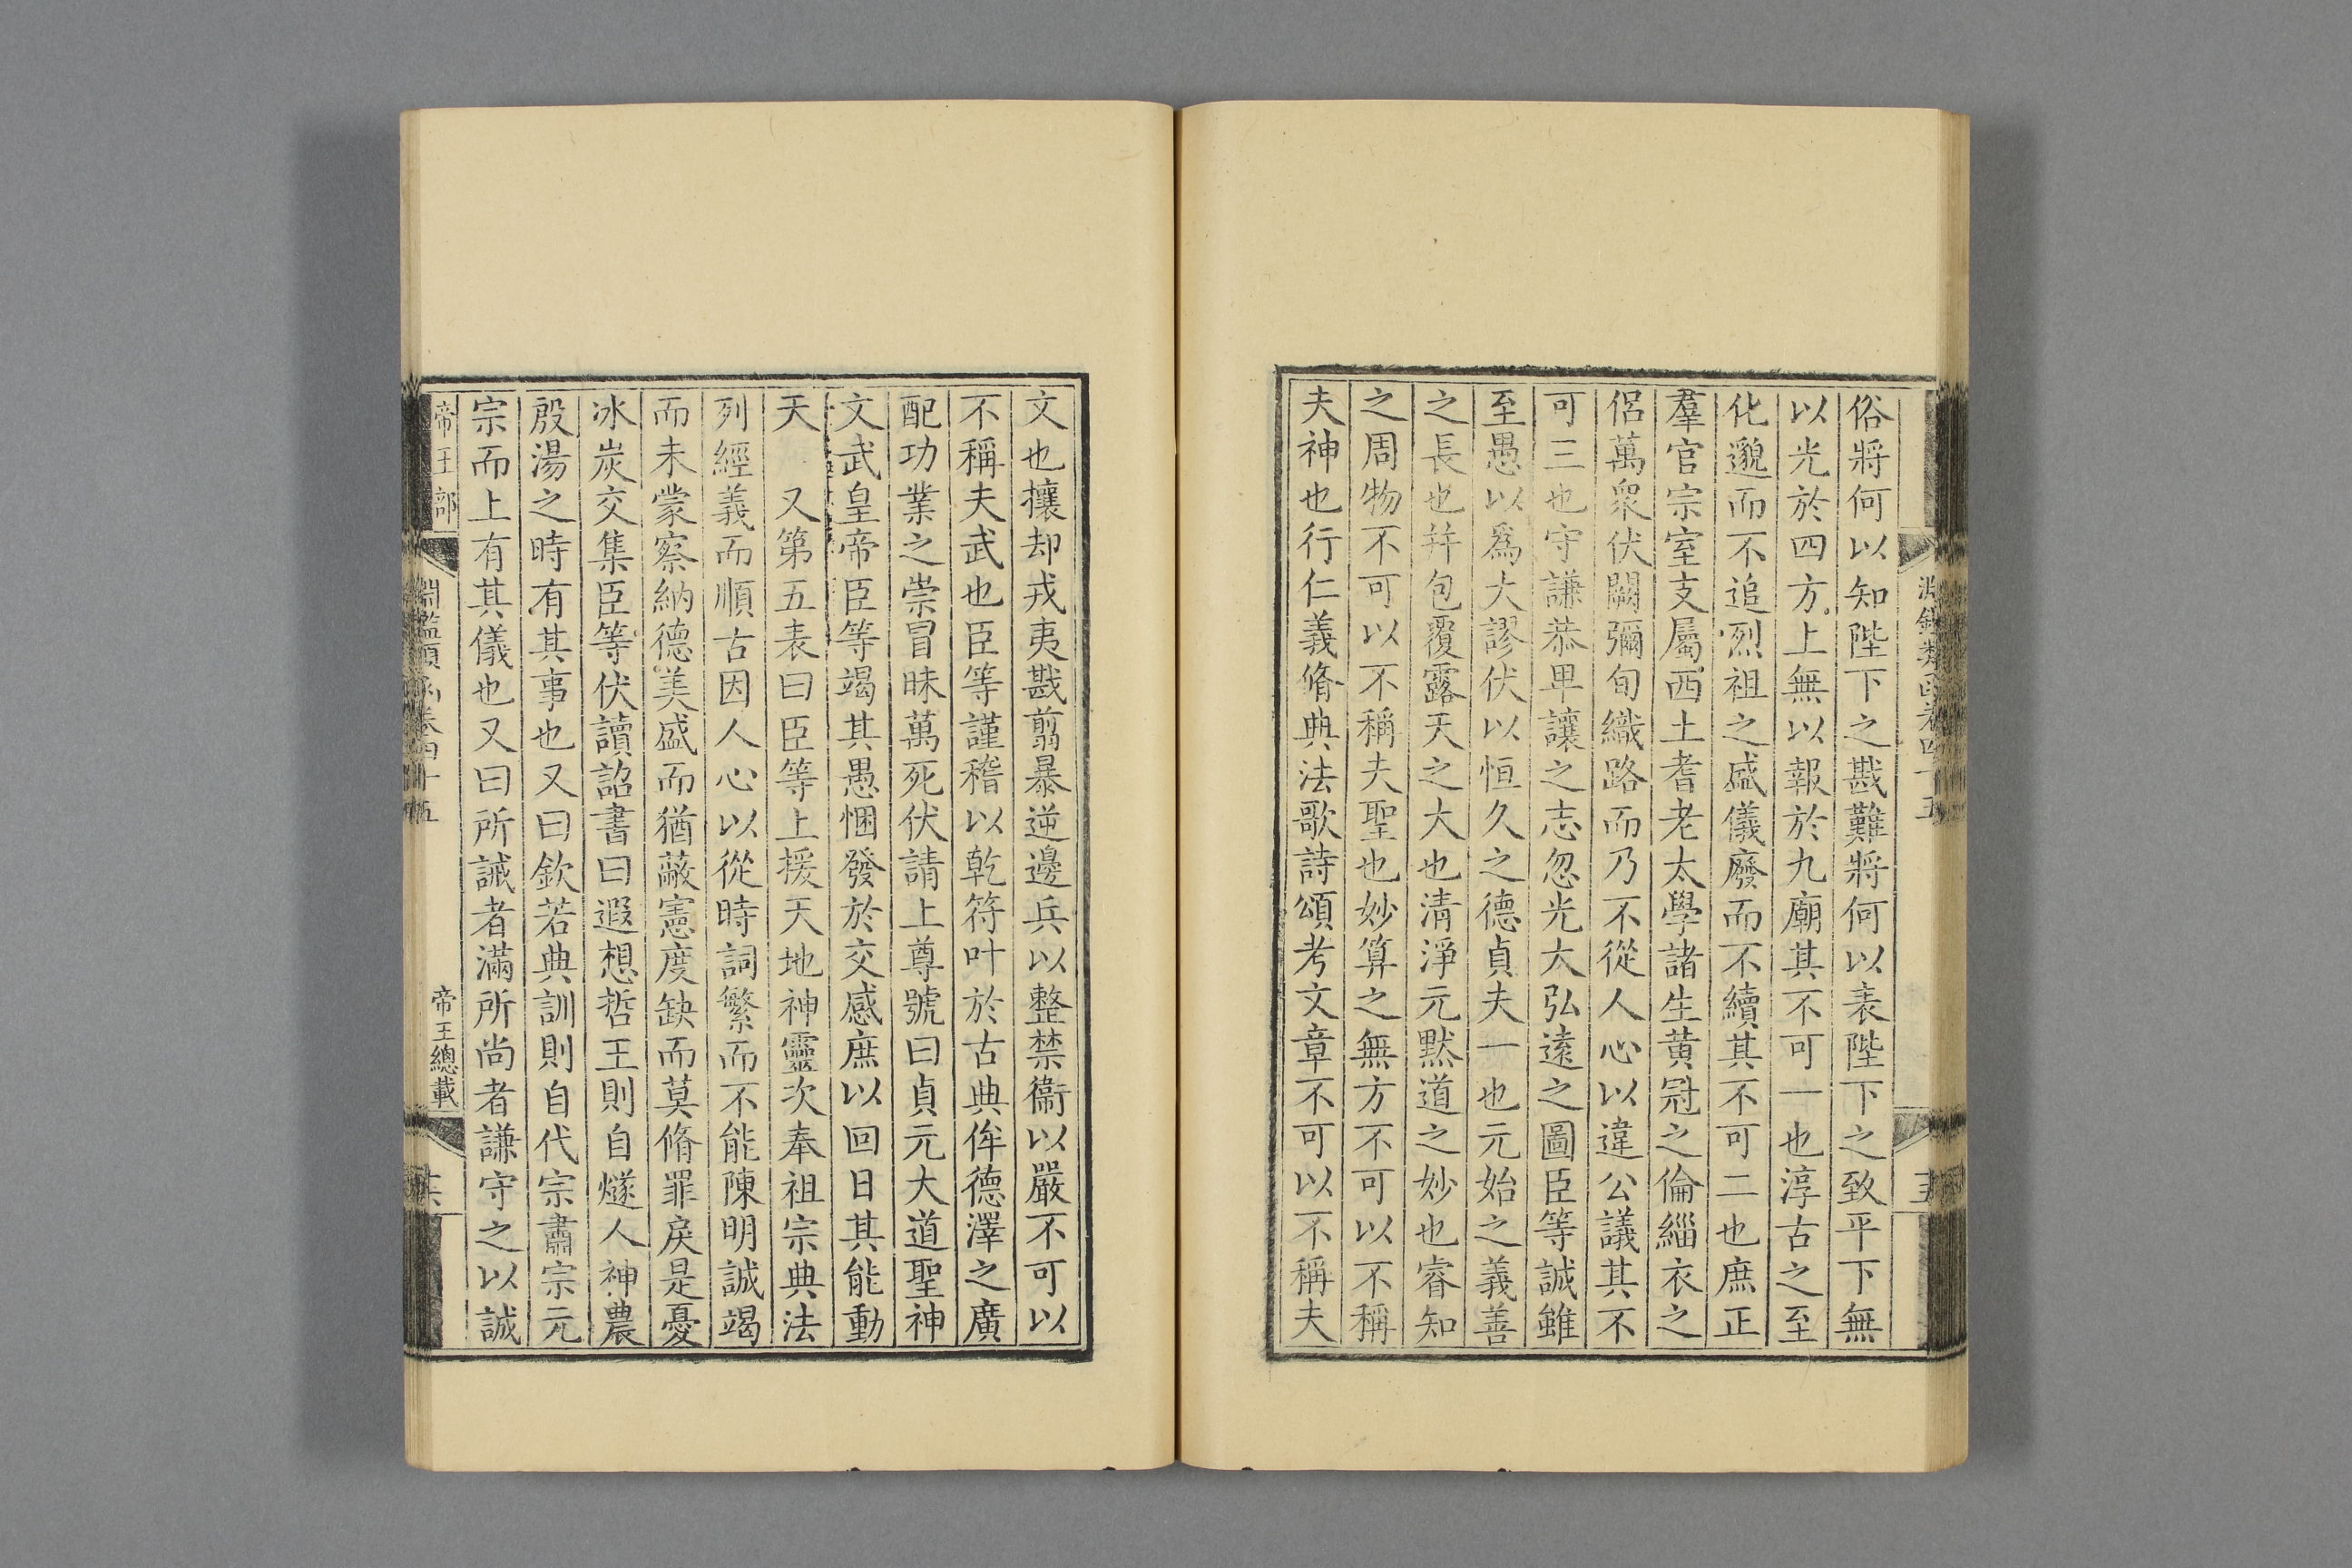 俗將何以知陛下之戡難將何以表陛下之致平下無
以光於四方上無以報於九廟其不可一也淳古之至
化邈而不追烈祖之盛儀廢而不續其不可二也庶正
羣官宗室支屬西土耆老太學諸生黄冠之倫緇衣之
侶萬衆伏闕彌旬織路而乃不從人心以違公議其不
可三也守謙恭卑讓之志忽光大弘遠之圖臣等誠雖
至愚以爲大謬伏以恒久之德貞夫一也元始之義善
之長也并包覆露天之大也清淨元默道之妙也睿知
之周物不可以不稱夫聖也妙算之無方不可以不稱
夫神也行仁義脩典法歌詩頌考文章不可以不稱夫
文也攘却戎夷戡翦暴逆邊兵以整禁衞以嚴不可以
不稱夫武也臣等謹稽以乾符叶於古典侔德澤之廣
配功業之崇冒昧萬死伏請上尊號曰貞元大道聖神
文武皇帝臣等竭其愚悃發於交感庶以回日其能動
天 又第五表曰臣等上援天地神靈次奉祖宗典法
列經義而順古因人心以從時詞繁而不能陳明誠竭
而未蒙察納德美盛而猶蔽憲度缺而莫脩罪戾是憂
冰炭交集臣等伏讀詔書曰遐想哲王則自燧人神農
殷湯之時有其事也又曰欽若典訓則自代宗肅宗元
宗而上有其儀也又曰所誡者滿所尚者謙守之以誠
帝王部
淵鑑類函卷四十五
帝王總載
十六